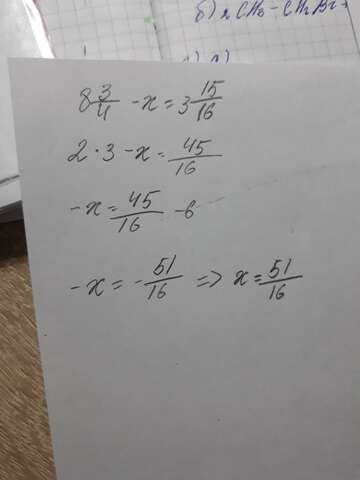 б) 2CH₃ - CH₂Br +
8 3/4 - x = 3 15/16
2 · 3 - x = 45/16
-x = 45/16 - 6
-x = - 51/16 => x = 51/16